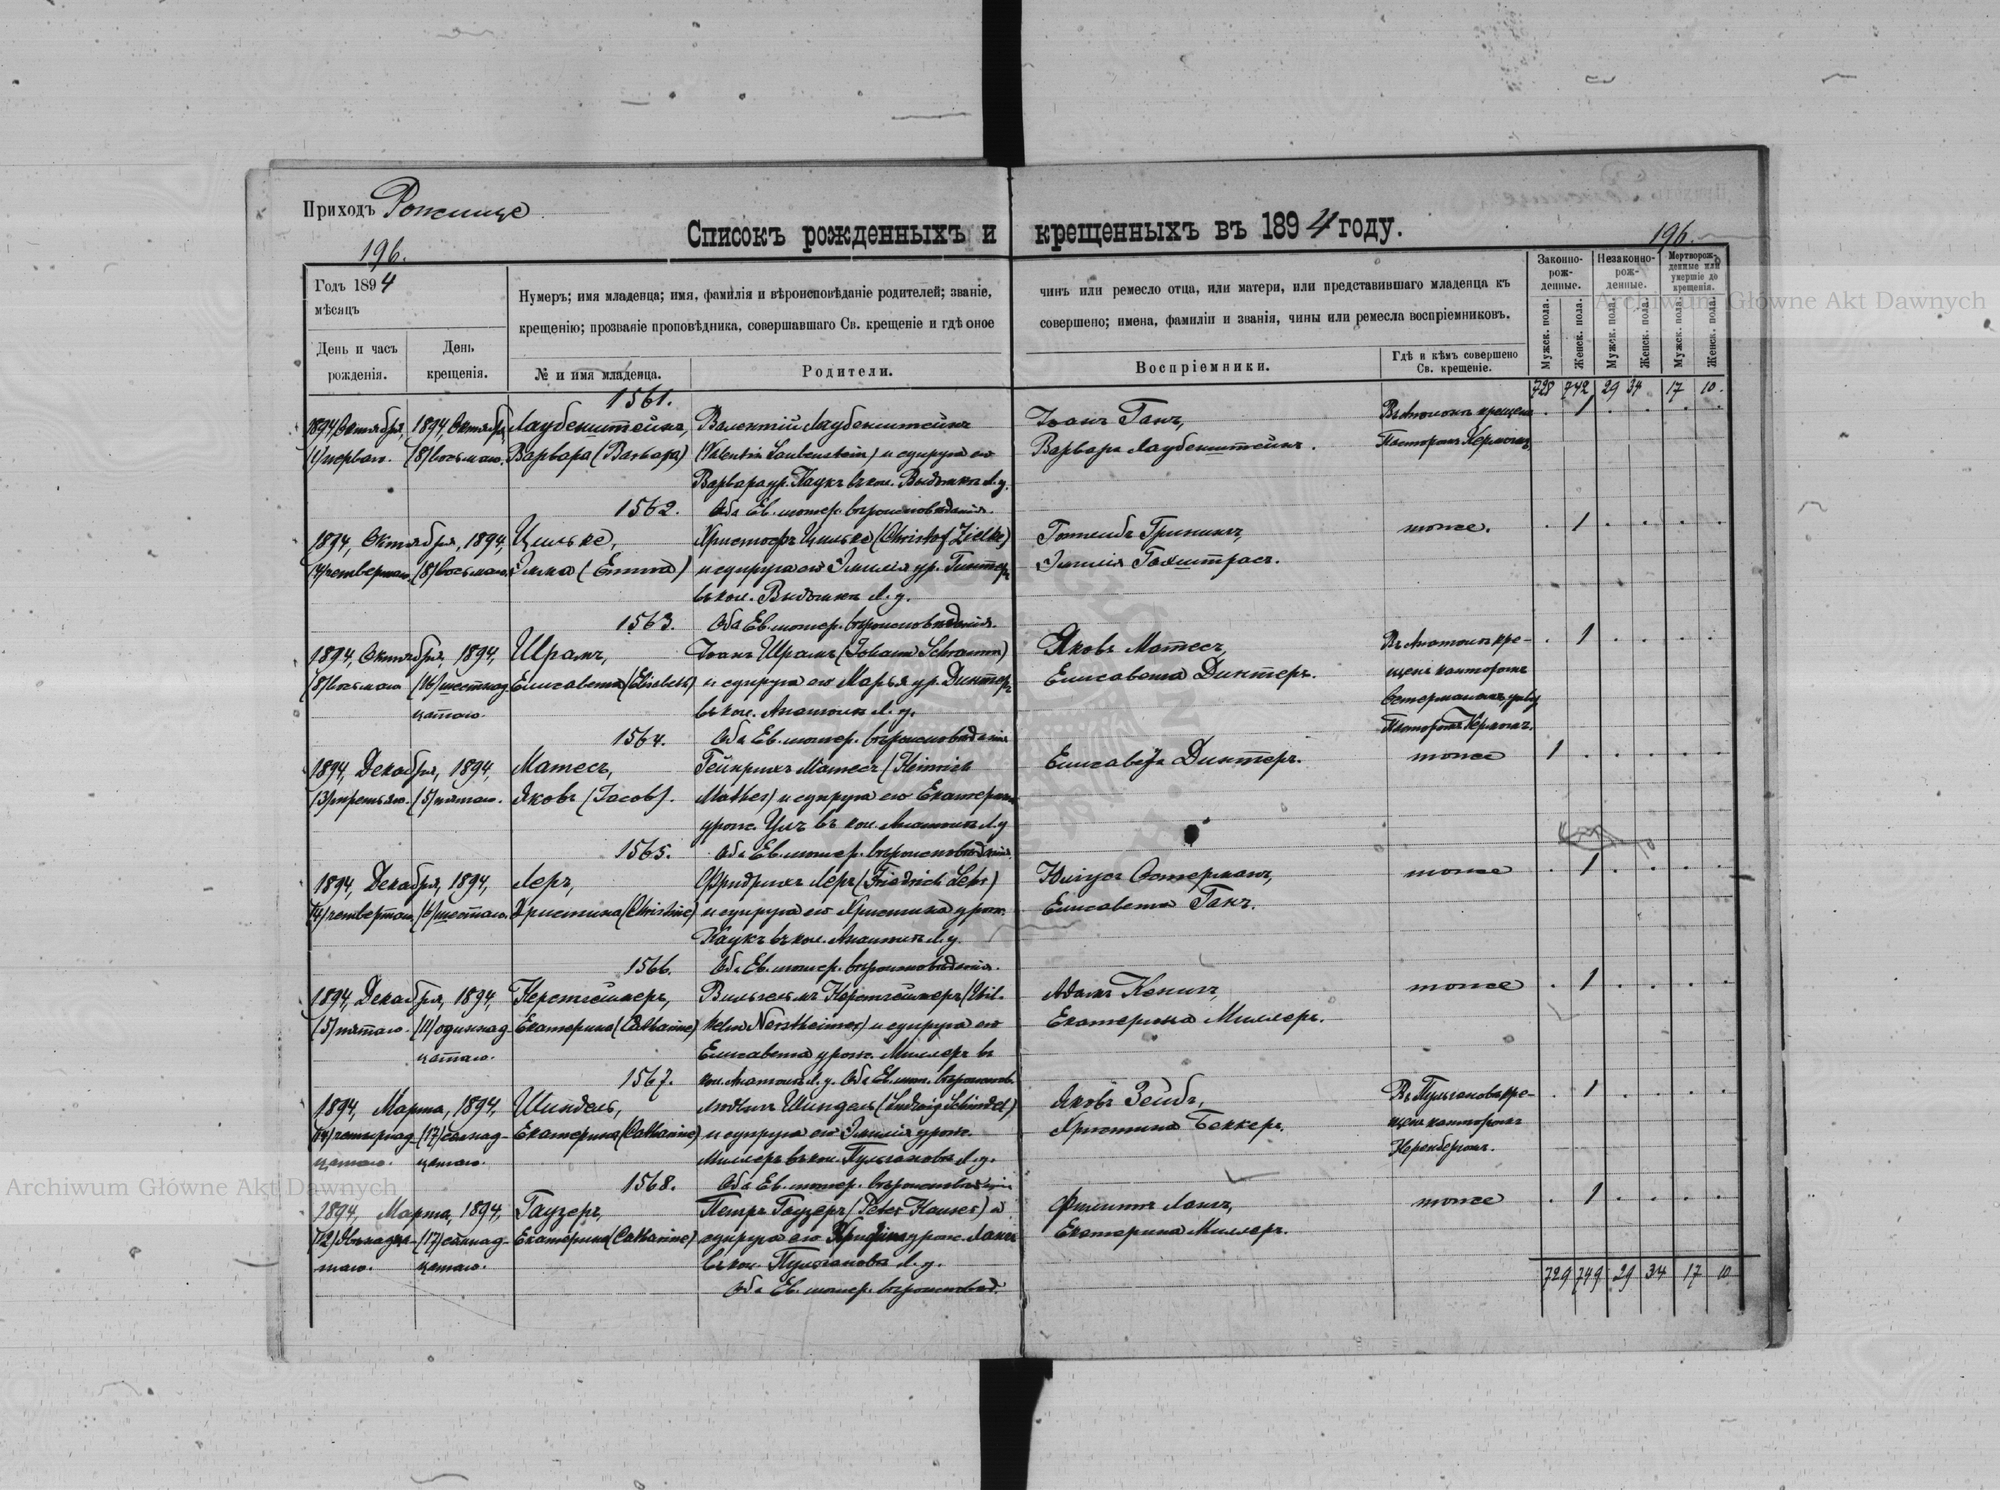 Приходъ Рожище
Списокъ рожденныхъ и крещенныхъ въ 1894 году.
196.
196.
Годъ 1894
мѣсяцъ
День и часъ
рожденія.
День
крещенія.
Нумеръ; имя младенца; имя, фамилія и вѣроисповѣданіе родителей; званіе,
крещенію; прозваніе проповѣдника, совершавшаго Св. крещеніе и гдѣ оное
№ и имя младенца.
Родители.
чинъ или ремесло отца, или матери, или представившаго младенца къ
совершено; имена, фамиліи и званія, чины или ремесла воспріемниковъ.
Воспріемники.
Гдѣ и кѣмъ совершено
Св. крещеніе.
Законно-
рож-
денные.
Незаконно-
рож-
денные.
Мертворож-
денные или
умершіе до
крещенія.
Мужск. пола.
Женск. пола.
Мужск. пола.
Женск. пола.
Мужск. пола.
Женск. пола.
728 742 29 34 17 10.
1561.
1894, Октября, 1894, Октября, Лаубенштейнъ, Валентій Лаубенштейнъ Іоанъ Ганъ, 1
(1) перваго. (8) восьмаго. Варвара (Barbara) (Valentin Laubenstein) и супруга его Варвара Лаубенштейнъ.
Варвара ур. Наукъ въ кол. Л. у.
1562. Оба Ев. лютер. вѣроисповѣданія.
1894, Октября, 1894, Цильке, Христофъ Цильке (Christof Zielke) Готлибъ тоже. 1
(4) четвертаго. (8) восьмаго. Эмма (Emma) и супруга его Эмилія ур. Эмилія
въ кол. Л. у.
1563. Оба Ев. лютер. вѣроисповѣданія.
1894, Октября, 1894, Шрамъ, Іоанъ Шрамъ (Johann Schramm) Яковъ Матесъ, 1
(8) восьмаго (16) шестнад- Елисавета (Elisabeth) и супруга его Марья ур. Динтеръ Елисавета Динтеръ. щенъ канторомъ
цатаго. въ кол. Анатолія Л. у.
1564. Оба Ев. лютер. вѣроисповѣданія
1894, Декабря, 1894, Матесъ, Гейнрихъ Матесъ (Heinrich Елисавета Динтеръ. тоже 1
(3) третьяго. (5) пятаго. Яковъ (Jacob). Mathes) и супруга его Екатерина
урож. въ кол. Анатолія Л. у.
1565. Оба Ев. лютер. вѣроисповѣданія
1894, Декабря, 1894, Леръ, Фридрихъ Леръ (Friedrich Lehr) Юліусъ Остерманъ, тоже 1
(4) четвертаго. (6) шестаго. Христина (Christine) и супруга его Христина урож. Елисавета Ганъ.
Наукъ въ кол. Анатолія Л. у.
1566. Оба Ев. лютер. вѣроисповѣданія.
1894, Декабря, 1894, Нерстгеймеръ, Вильгельмъ Нерстгеймеръ (Wil- Адамъ тоже 1
(5) пятаго (11) одиннад- Екатерина (Catharine) helm Nerstheimer) и супруга его Екатерина Миллеръ.
цатаго. Елисавета урож. Миллеръ въ
1567. кол. Анатолія Л. у. Оба Ев. лют. вѣроисповѣд.
1894, Марта, 1894, Шиндель, Людвигъ Шиндель (Ludwig Schindel) Яковъ Зейбъ, 1
(14) четырнад- (17) семнад- Екатерина (Catharine) и супруга его Эмилія урож. Христина Беккеръ, щенъ канторомъ
цатаго. цатаго. Миллеръ въ кол. Пульганова Л. у.
1568. Оба Ев. лютер. вѣроисповѣданія
1894, Марта, 1894, Гаузеръ, Петръ Гаузеръ (Peter Hauser) и Филиппъ Лангъ, тоже 1
(12) двѣнадца- (17) семнад- Екатерина (Catharine) супруга его урож. Лангъ Екатерина Миллеръ.
таго. цатаго. въ кол. Пульганова Л. у.
Оба Ев. лютер. вѣроисповѣд.
729 749 29 34 17 10
Archiwum Główne Akt Dawnych
Archiwum Główne Akt Dawnych